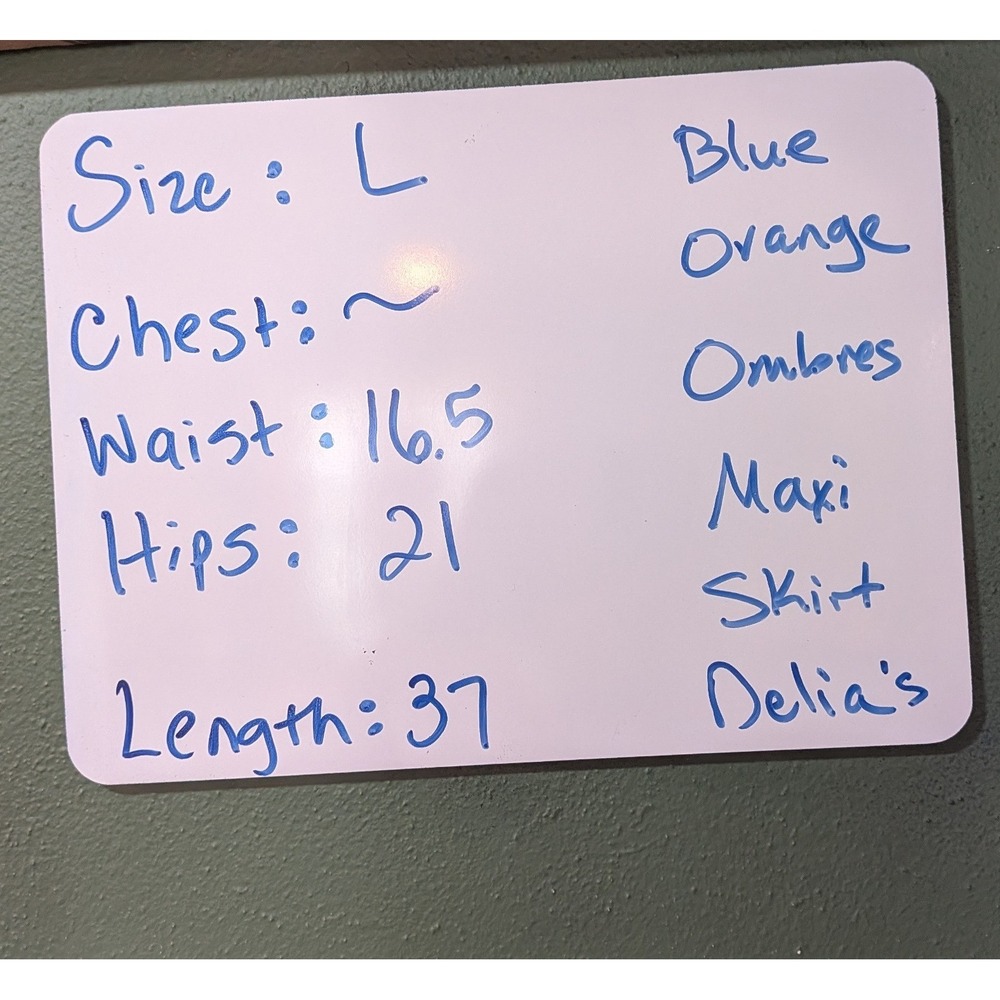 Size: L
Chest: ~
Waist: 16.5
Hips: 21
Length: 37
Blue
Orange
Ombres
Maxi
Skirt
Delia's